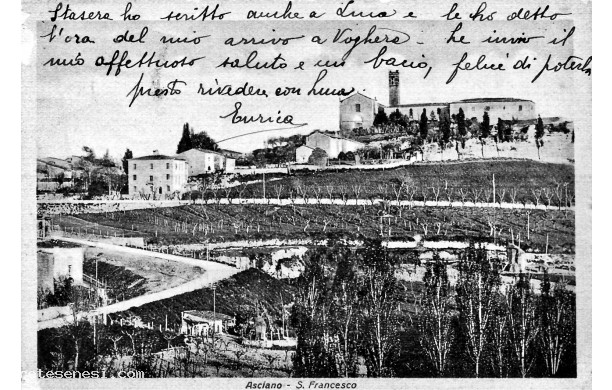 Stasera ho scritto anche a Luca e le ho detto
l'ora del mio arrivo a Voghera - Le invio il
mio affettuoso saluto e un bacio, felice di poterla
presto rivedere con Luca.
Enrica
cartesenesi.com
Asciano - S. Francesco